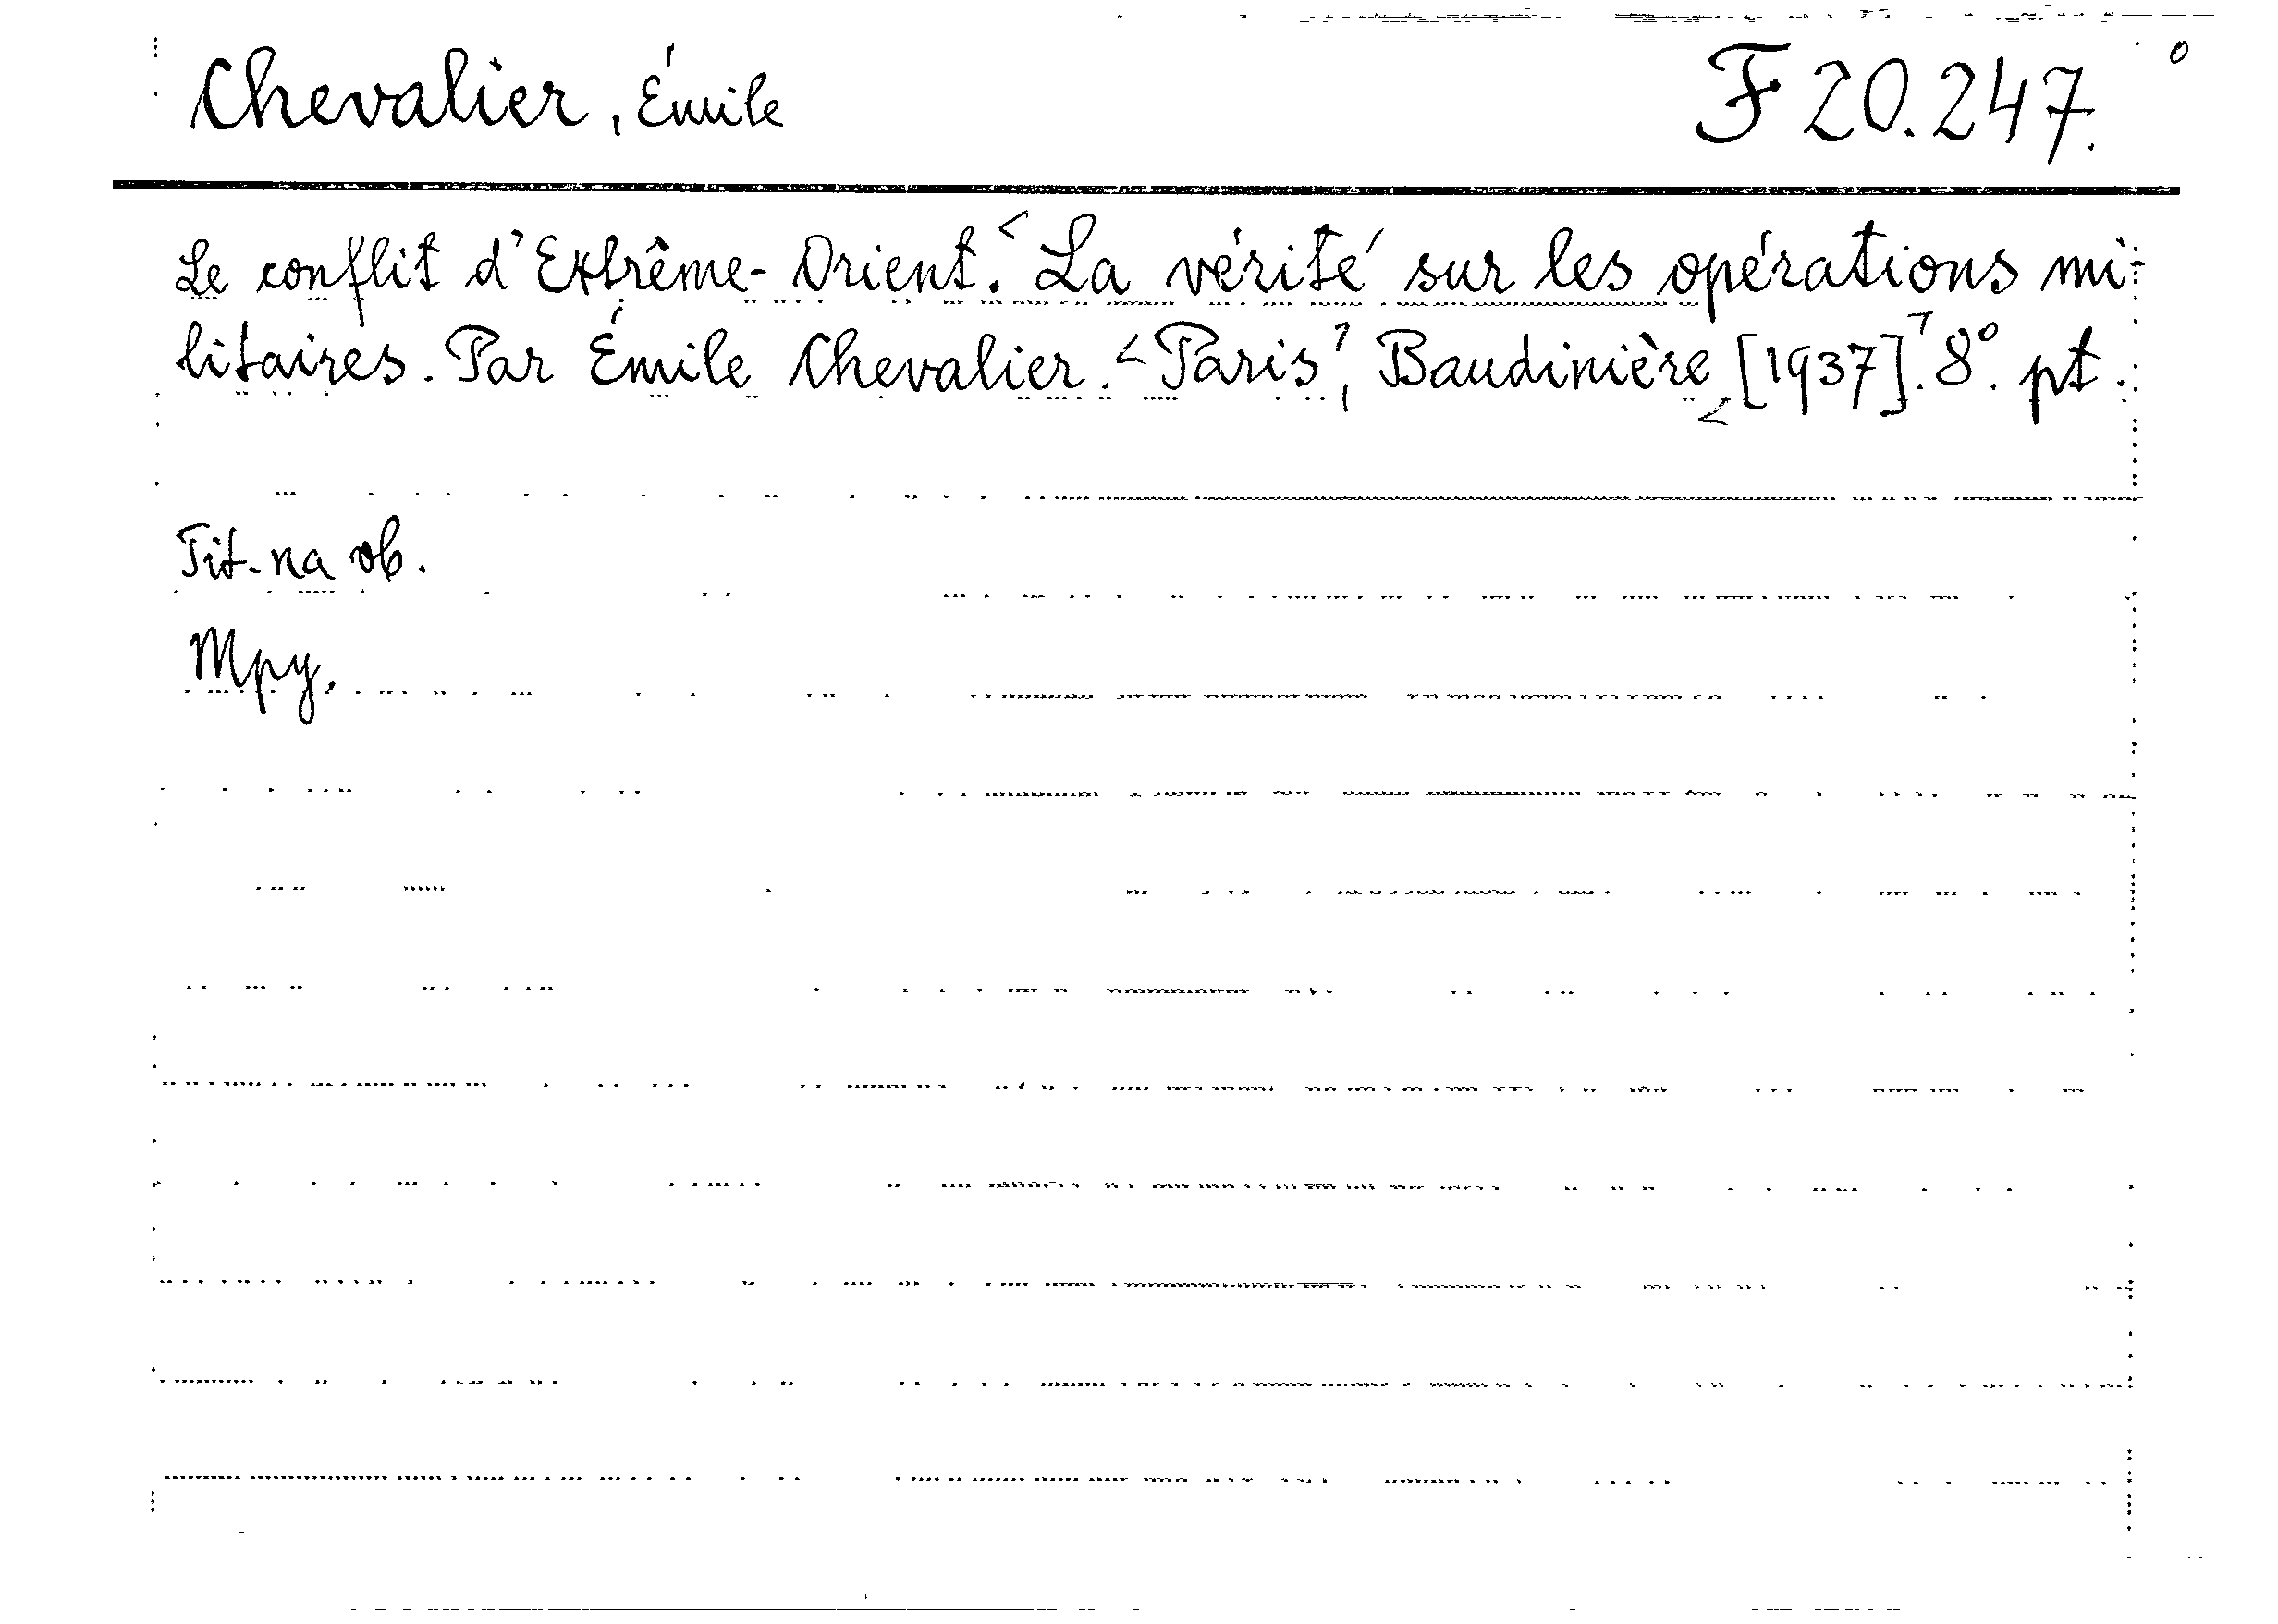 Chevalier, Émile F 20.247.
Le conflit d'Extrême-Orient. La vérité sur les opérations mi-
litaires. Par Émile Chevalier. Paris, Baudinière [1937]. 8°. pt.
Tit. na ob.
Mpy.